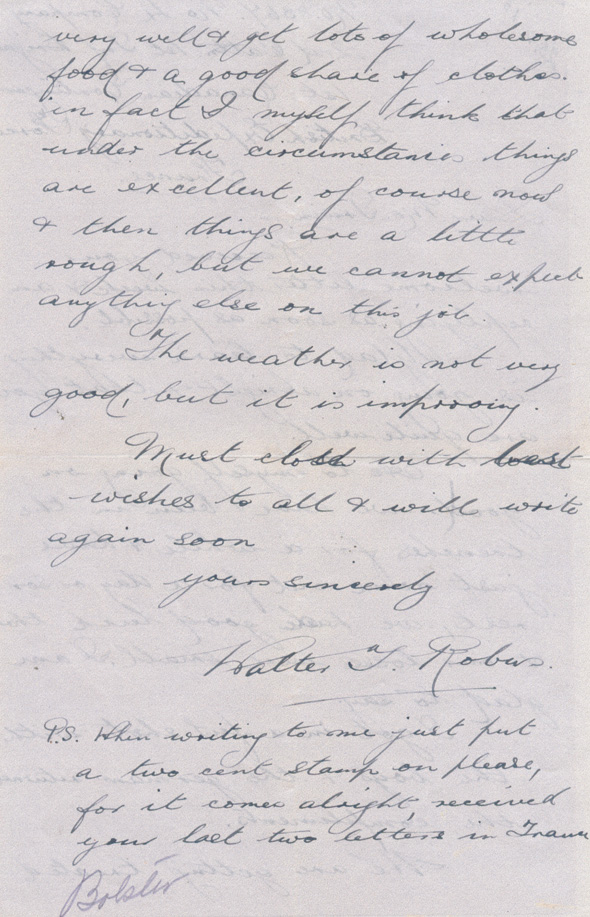 very well & get lots of wholesome
food & a good share of clothes.
in fact I myself think that
under the circumstances things
are excellent, of course now
& then things are a little
rough, but we cannot expect
anything else on this job.
The weather is not very
good, but it is improving.
Must close with best
wishes to all & will write
again soon
yours sincerely
Walter T. Robus.
P.S. When writing to me just put
a two cent stamp on please,
for it comes alright, received
your last two letters in France
Bolster